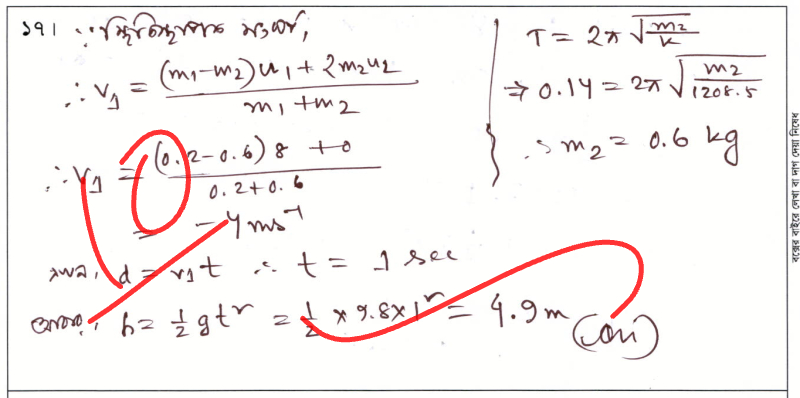 ১৭। ∵ স্থিতিস্থাপক সংঘর্ষ,
∴ v₁ = (m₁-m₂)u₁ + 2m₂u₂ / m₁+m₂
∴ v₁ = (0.2-0.6) 8 + 0 / 0.2+0.6
= -4 ms⁻¹
d = v₁t ∴ t = 1 sec
h = ½ gt² = ½ × 9.8 × 1² = 4.9 m
T = 2π √(m₂/k)
⇒ 0.14 = 2π √(m₂/1208.5)
∴ m₂ = 0.6 kg
বক্সের বাইরে লেখা বা দাগ দেয়া নিষেধ